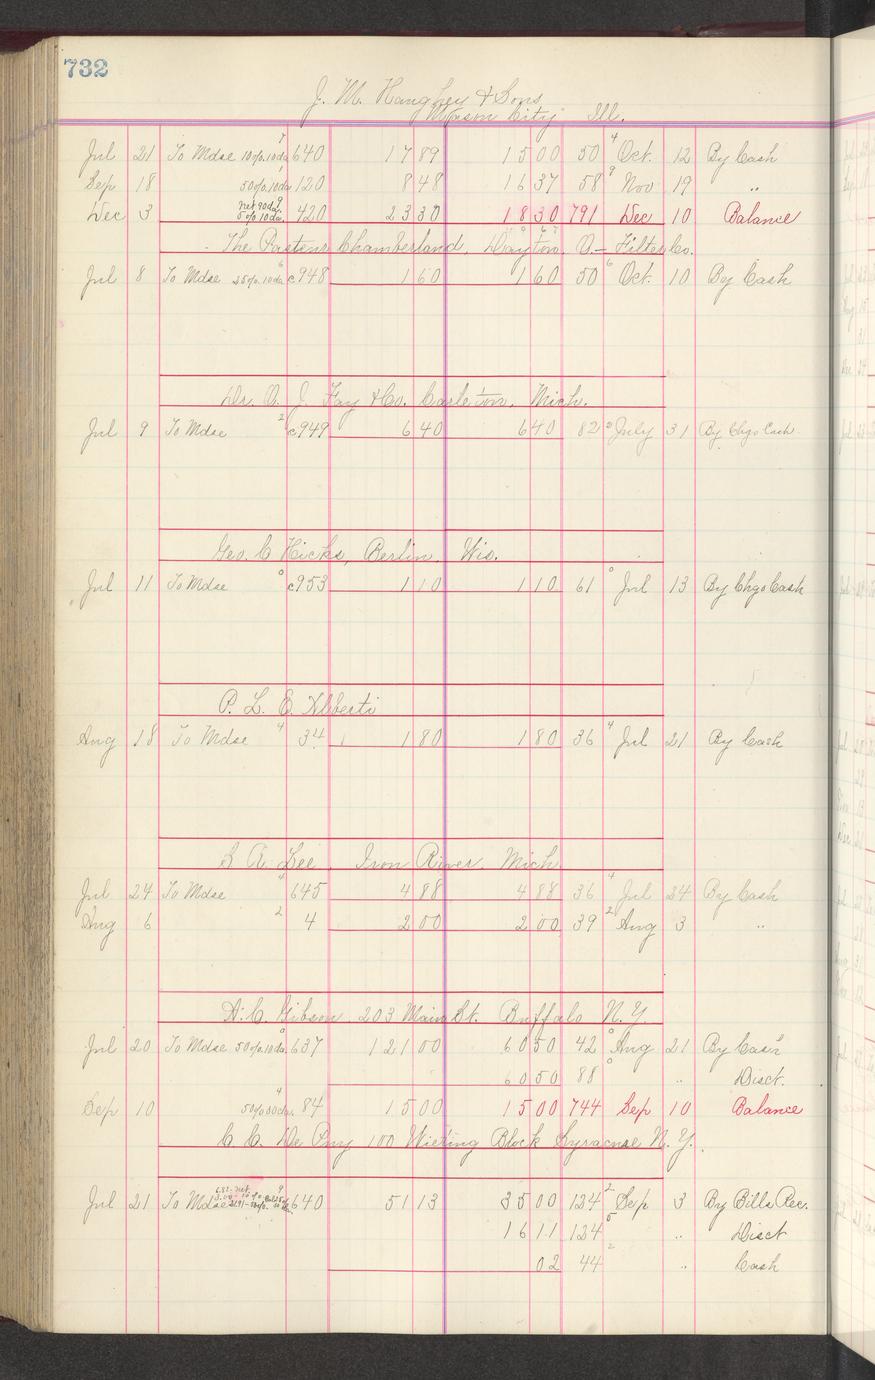 732
J. M. Haughey & Sons
Mason City Ill.
Jul 21 To Mdse 10%10da 7 640 17 89 15 00 50 4 Oct. 12 By Cash
Sep 18 50%10da 1 120 8 48 16 37 58 9 Nov 19 "
Dec 3 net 90da 9 5%10da. 420 23 30 18 30 791 Dec 10 Balance
The Chamberland, Dayton, O. – Filter Co.
Jul 8 To Mdse 25%10da 6 c948 1 60 1 60 50 6 Oct. 10 By Cash
Dr. O. J. Fay & Co. Carleton, Mich.
Jul 9 To Mdse 2 c949 6 40 6 40 82 0 July 31 By Chgo Cash
Geo. C Hicks, Berlin, Wis.
Jul 11 To Mdse 0 c953 1 10 1 10 61 0 Jul 13 By Chgo Cash
P. L. E. Aliberti
Aug 18 To Mdse 4 34 1 80 1 80 36 4 Jul 21 By Cash
S R. Lee, Iron River, Mich.
Jul 24 To Mdse 4 645 4 88 4 88 36 4 Jul 24 By Cash
Aug 6 2 4 2 00 2 00 39 2 Aug 3 "
H. C. Gibson, 203 Main St. Buffalo N. Y.
Jul 20 To Mdse 50%10da. 0 637 121 00 60 50 42 0 Aug 21 By Cash
60 50 88 0 " Disct.
Sep 10 4 84 15 00 15 00 744 Sep 10 Balance
C. C. De Puy 100 Wieting Block Syracuse N. Y.
Jul 21 To Mdse 9 640 51 13 35 00 124 2 Sep 3 By Bills Rec.
16 11 124 5 " Disct
02 44 2 " Cash